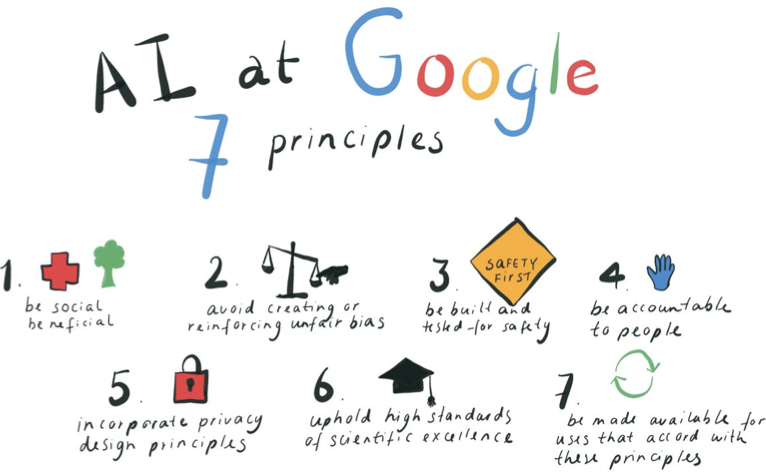 AI at Google
7 principles
1.
be social
beneficial
2.
avoid creating or
reinforcing unfair bias
3.
SAFETY
FIRST
be built and
tested for safety
4.
be accountable
to people
5.
incorporate privacy
design principles
6.
uphold high standards
of scientific excellence
7.
be made available for
uses that accord with
these principles